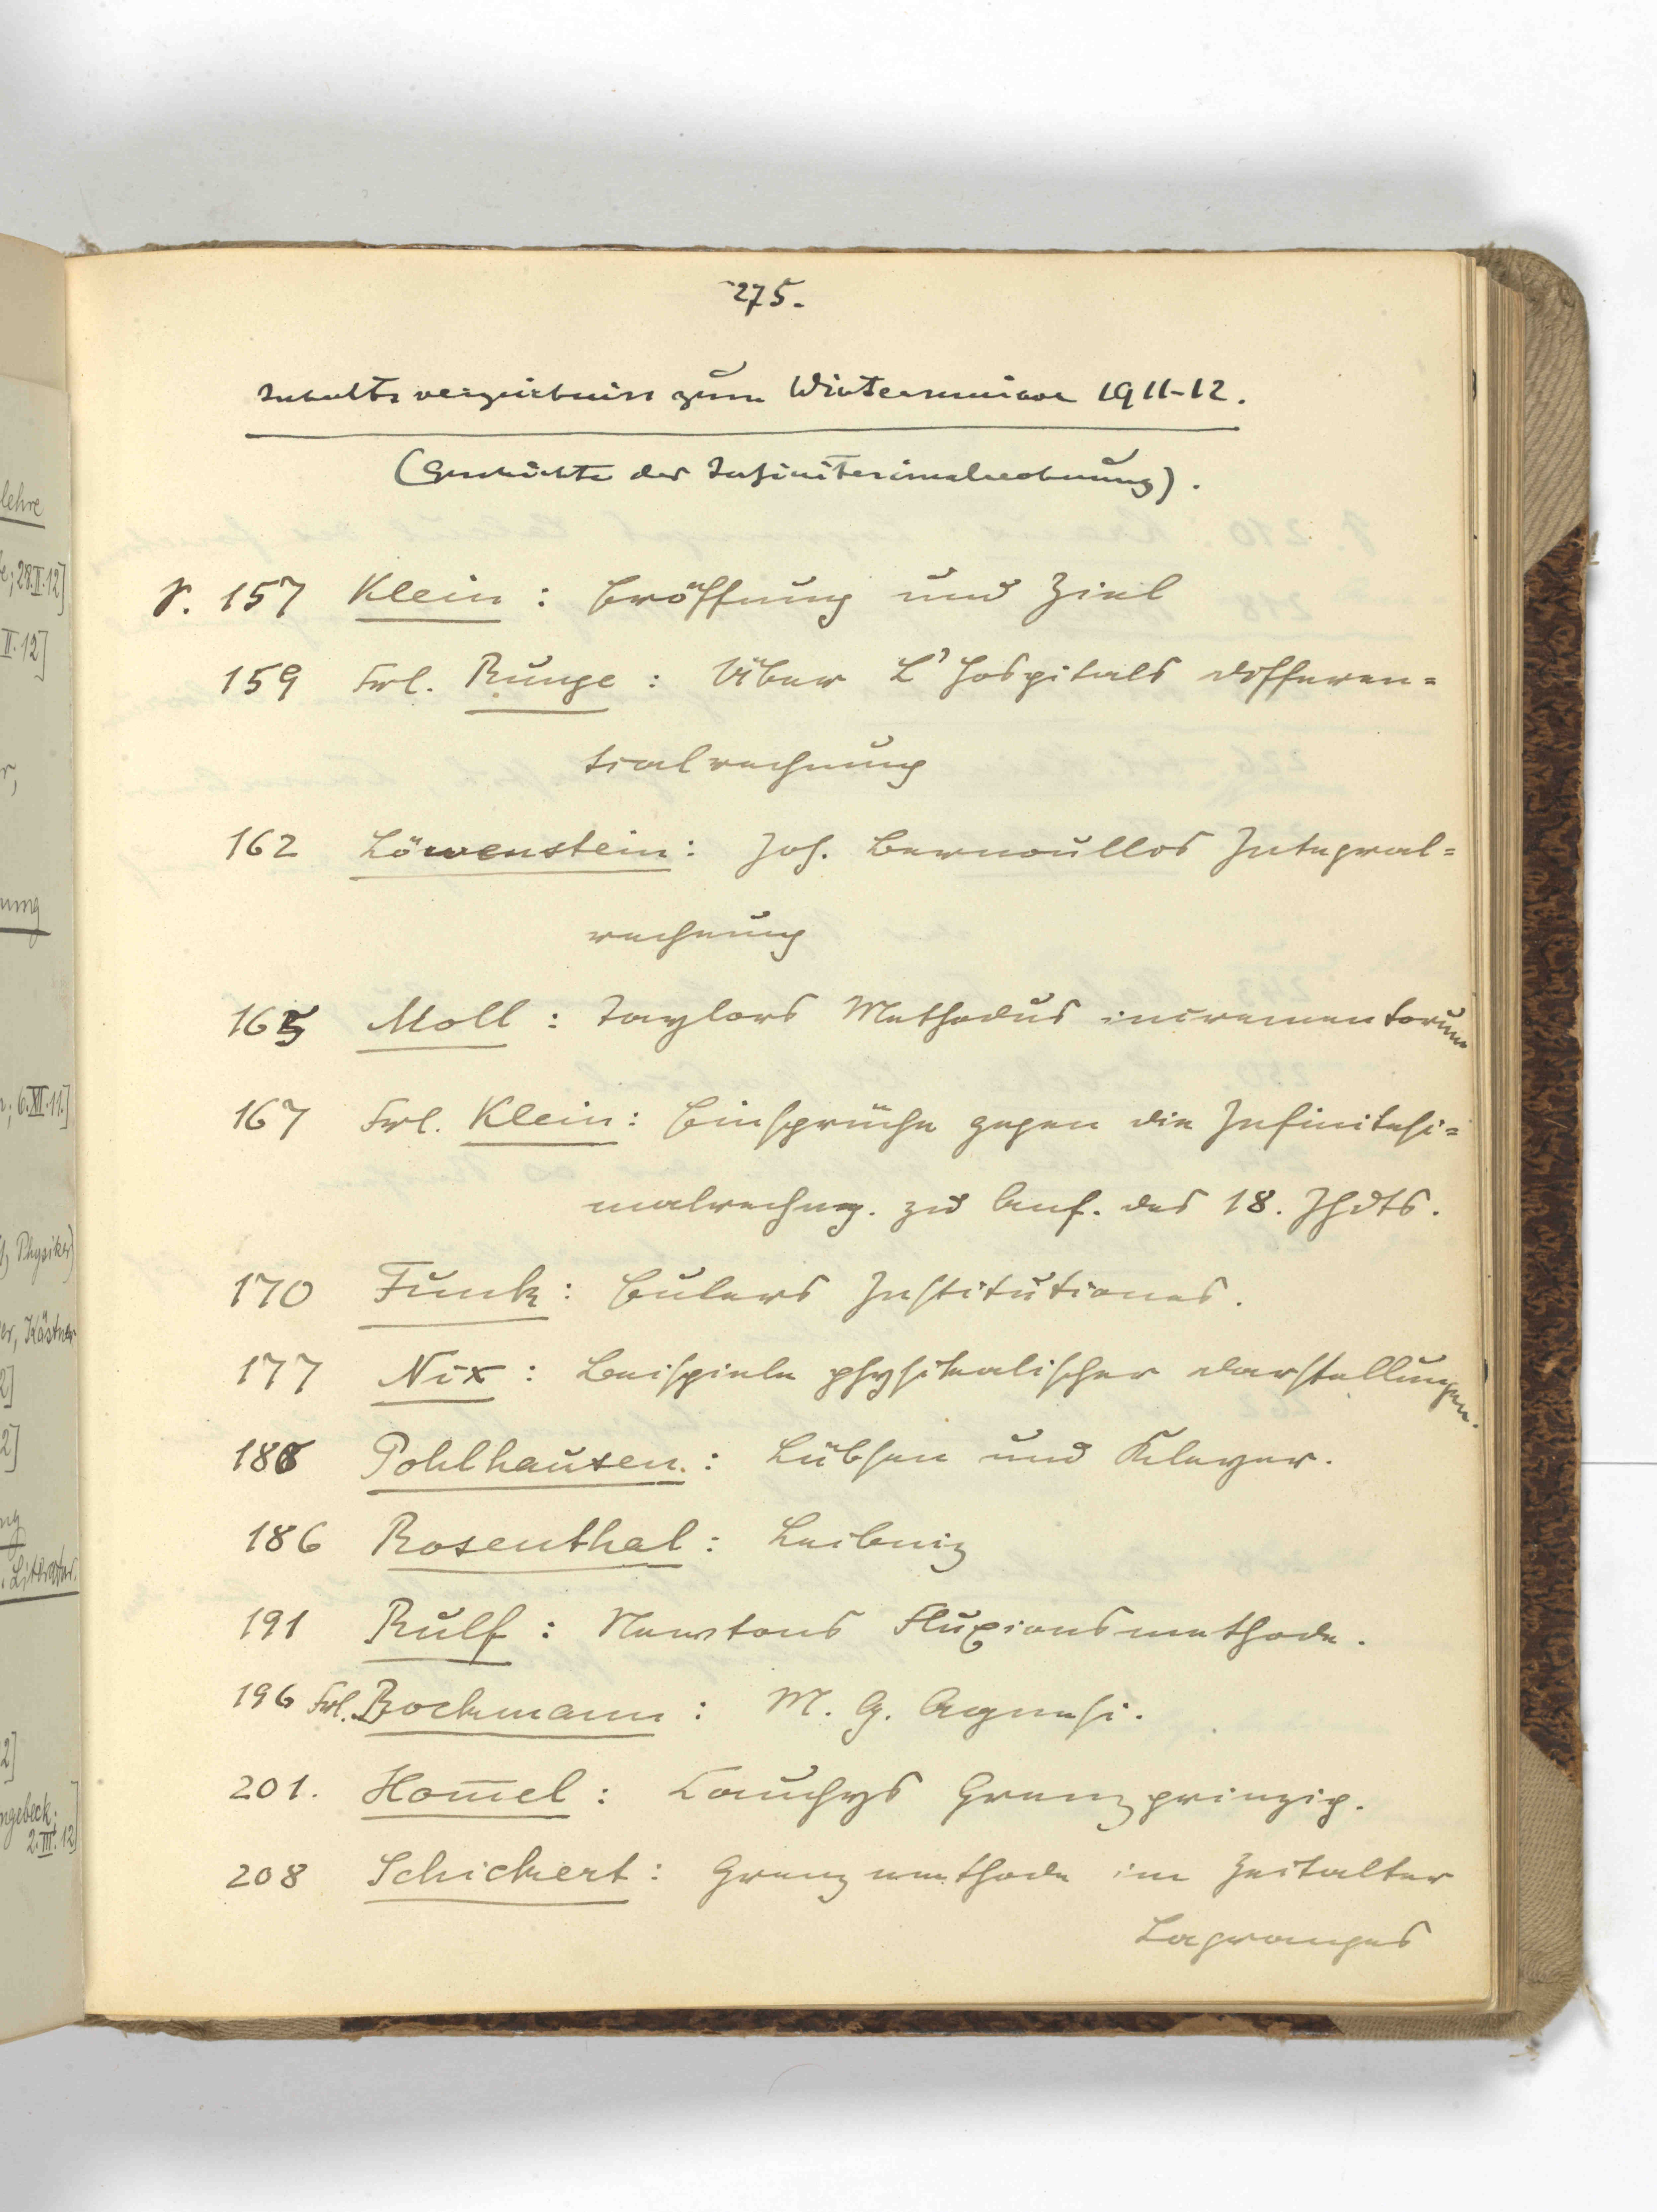 275.
Inhaltsverzeichniss zum Winterseminar 1911-12.
(Geschichte der Infinitesimalrechnung).
S. 157 Klein : Eröffnung und Ziel
159 Frl. Runge : Über L'Hospitals Differen=
tialrechnung
162 Löwenstein : Joh. Bernoullis Integral=
rechnung
165 Moll : Taylors Methodus incrementorum
167 Frl. Klein : Einsprüche gegen die Infinitesi=
malrechng. zu Anf. des 18. Jhdts.
170 Funk : Eulers Institutiones.
177 Nix : Beispiele physikalischer Darstellungen.
Pohlhausen : Lübsen und Kleyer.
186 Rosenthal : Leibniz
191 Rulf : Newtons Fluxionsmethode.
196 Frl. Bockmann : M. G. Agnesi.
201. Hom̄el : Cauchys Grenzprinzip.
208 Schickert : Grenzmethode im Zeitalter
Lagranges
lehre
28.II.12]
II.12]
nung
6.XI.11.]
Physiker)
Kästner
2]
2]
Literatur.
2]
ngebeck;
2.III.12]